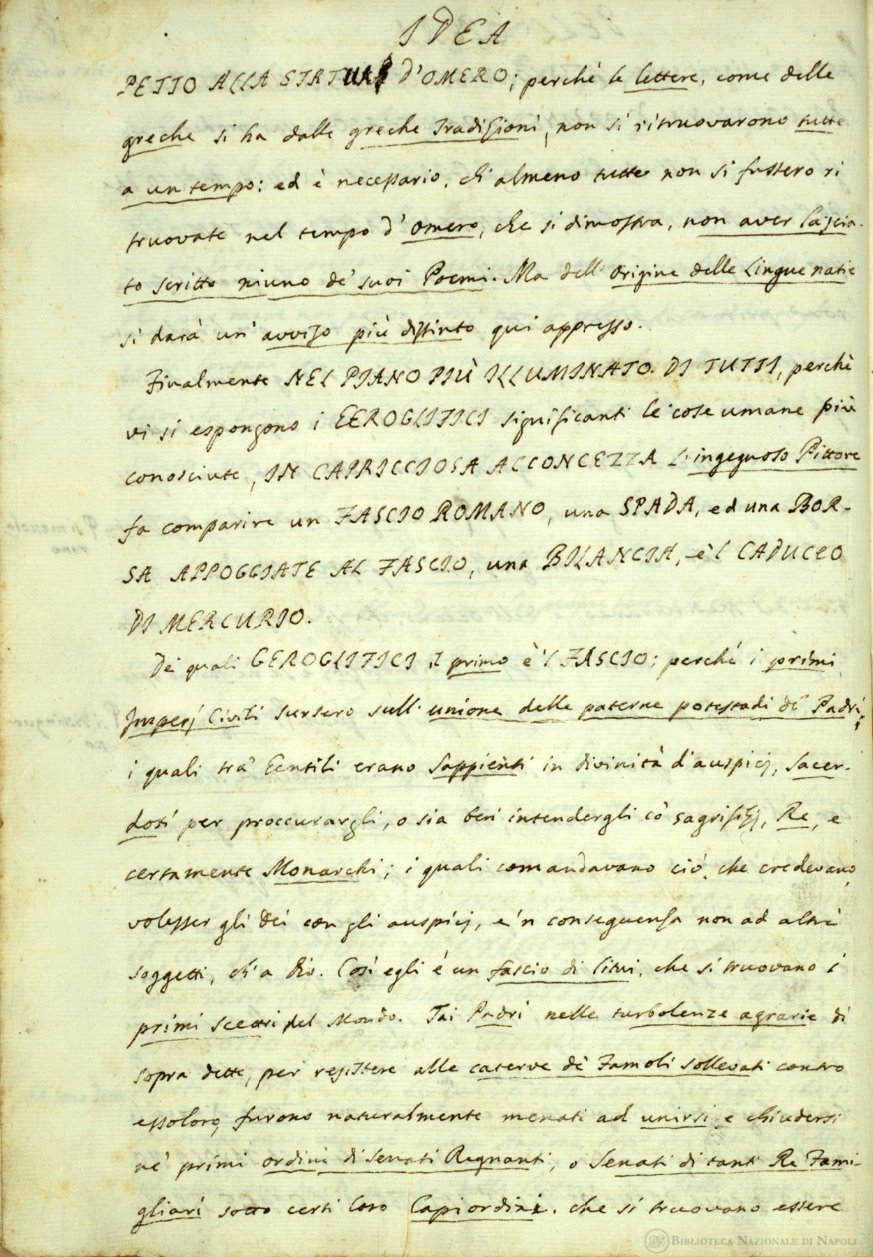 IDEA
PETTO ALLA STATUA D'OMERO; perchè le lettere, come delle
greche si ha dalle greche Tradizioni, non si ritruovarono tutte
a un tempo: ed è necessario, ch'almeno tutte non si fussero ri
truovate nel tempo d'Omero, che si dimostra, non aver lascia-
to scritto niuno de' suoi Poemi. Ma dell'Origine delle Lingue natie
si darà un'avviso più distinto qui appresso.
Finalmente NEL PIANO PIÙ ILLUMINATO DI TUTTI, perchè
vi si espongono i GEROGLIFICI significanti le cose umane più
conosciute, IN CAPRICCIOSA ACCONCEZZA l'ingegnoso Pittore
fa comparire un FASCIO ROMANO, una SPADA, ed una BOR-
SA APPOGGIATE AL FASCIO, una BILANCIA, e'l CADUCEO
DI MERCURIO.
Dei quali GEROGLIFICI il primo è 'l FASCIO; perchè i primi
Imperj Civili sursero sull'unione delle paterne potestadi de' Padri;
i quali tra' Gentili erano Sappienti in divinità d'auspicj, Sacer-
doti per proccurargli, o sia ben intendergli co' sagrifizj, Re, e
certamente Monarchi; i quali comandavano ciò, che credevano,
volesser gli dei con gli auspicj, e 'n conseguenza non ad altri
soggetti, ch'a Dio. Così egli è un fascio di litui, che si truovano i
primi scettri del Mondo. Tai Padri nelle turbolenze agrarie di
sopra dette, per resistere alle caterve de' Famoli sollevati contro
essoloro, furono naturalmente menati ad unirsi e chiudersi
ne' primi ordini di Senati Regnanti, o Senati di tanti Re Fami-
gliari sotto certi loro Capiordini, che si truovano essere
BIBLIOTECA NAZIONALE DI NAPOLI